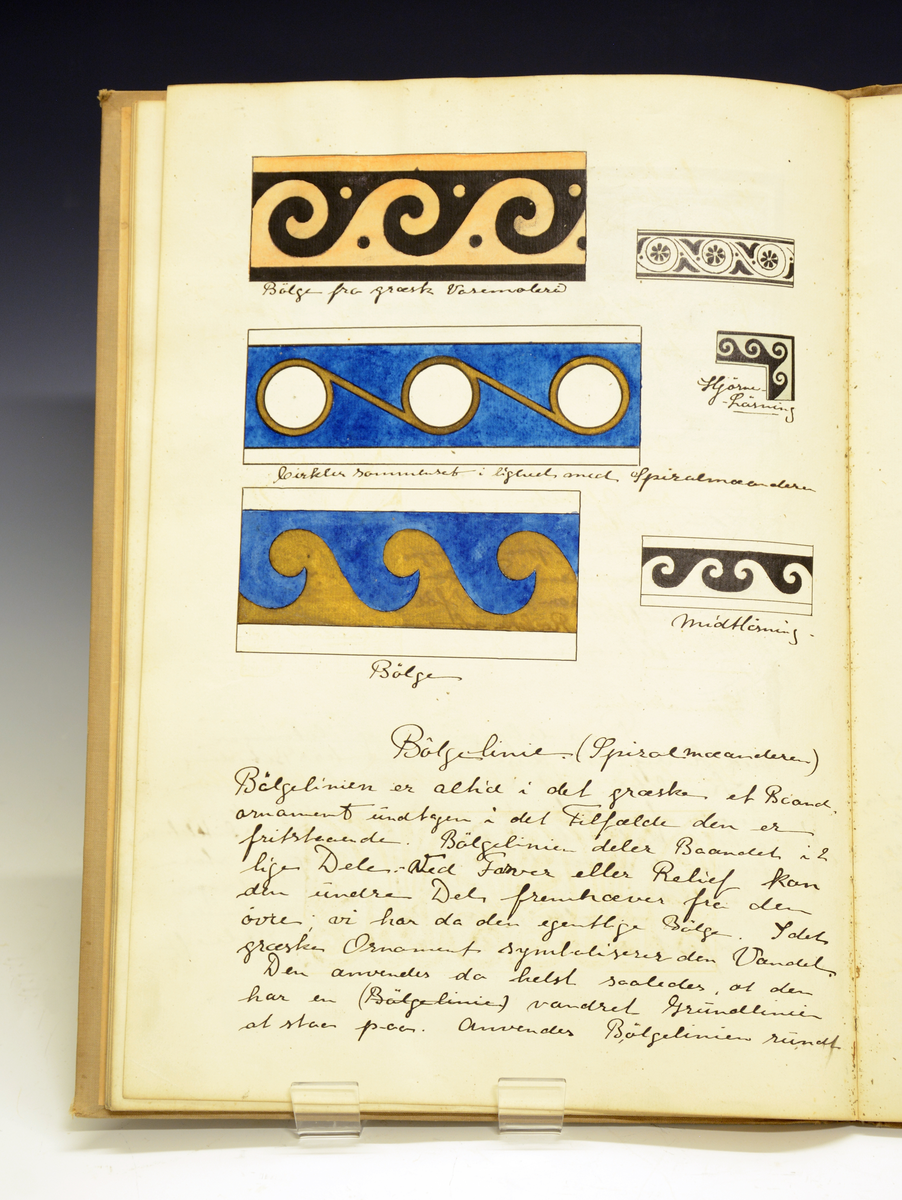 Bölge fra græsk Vasemaleri
Hjörne-
-Lösning
Cirkler sammensat i lighed med Spiralmæanderen
Midtlösning.
Bölge
Bölgelinie. (Spiralmæanderen)
Bölgelinien er altid i det græske et Baand.
ornament undtagen i det Tilfælde den er
fritstaaende. Bölgelinien deler Baandet i 2
lige Dele. Ved Farver eller Relief kan
den undre Del fremhæves fra den
övre, vi har da den egentlige Bölge. I det
græske Ornament symboliserer den Vandet.
Den anvendes da helst saaledes, at den
har en (Bölgelinie) vandret Grundlinie
at staa paa. Anvendes Bölgelinien rundt